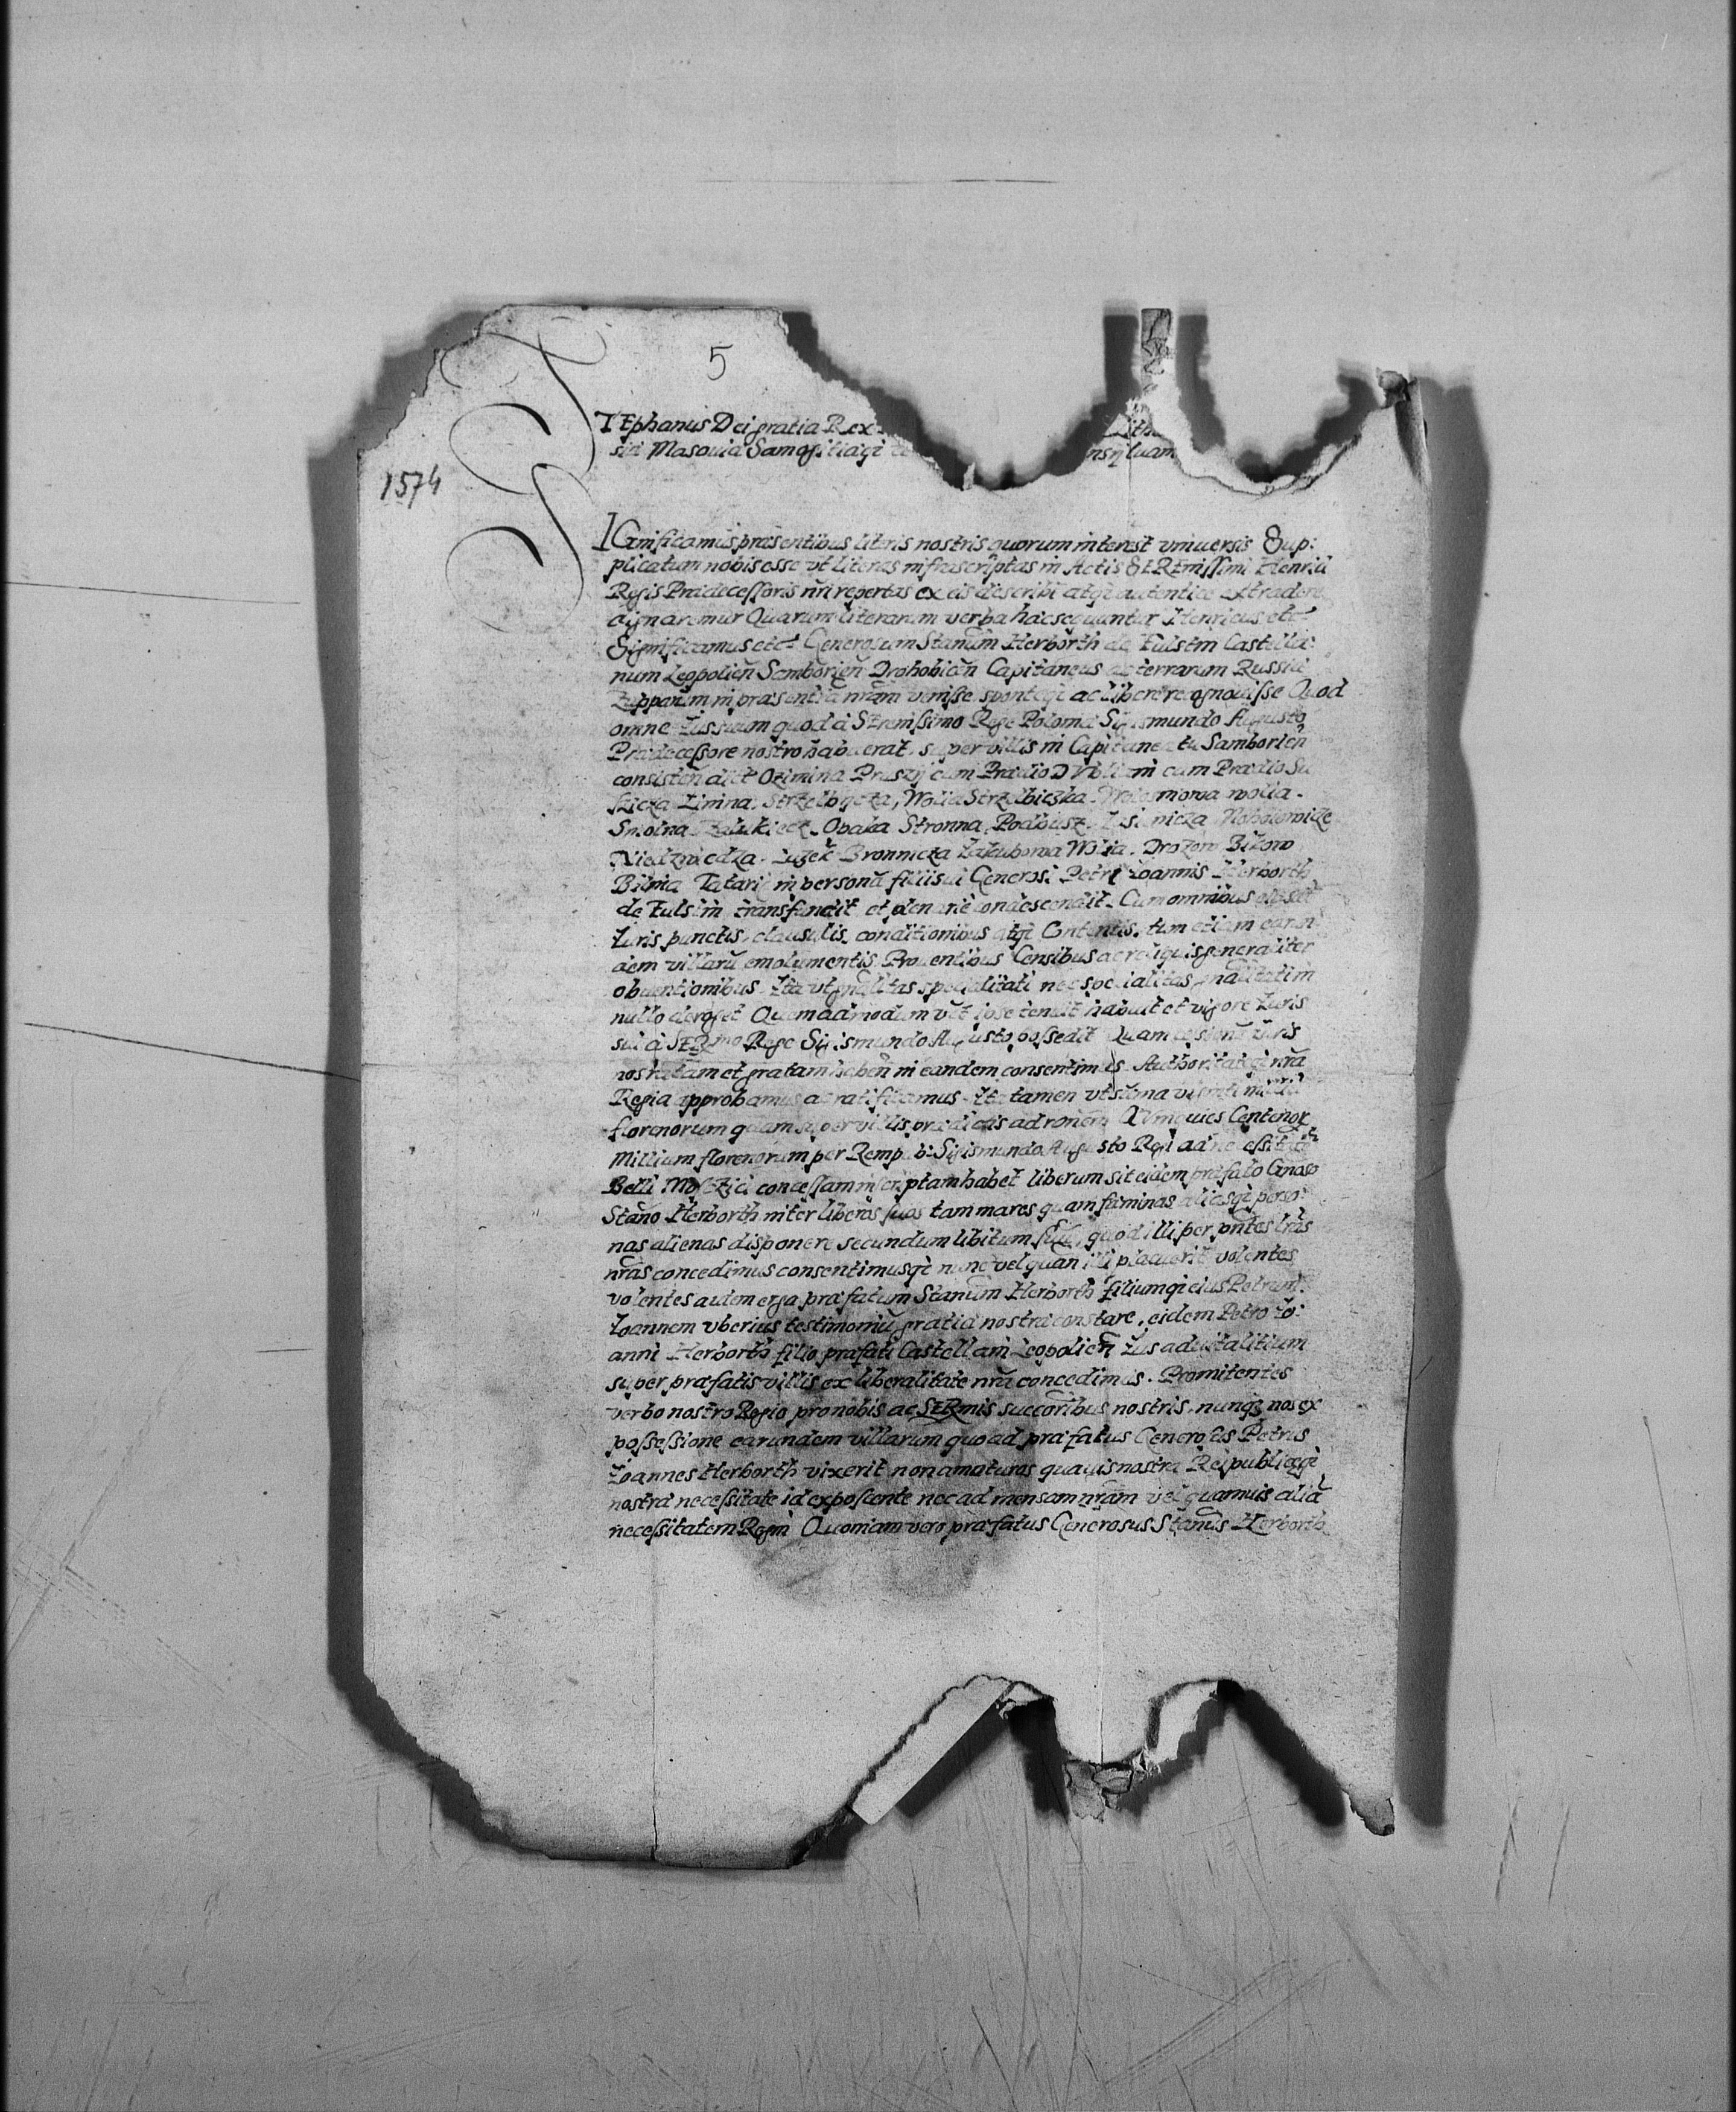 5
STEphanus Dei gratia Rex Lith
siæ Masouiæ Samogitiæqȝ nsyluan
1574
SIGnificamus præsentibus literis nostris quorum interest vniuersis Sup:
plicatum nobis esse vt literas infrascriptas in Actis SEREnissimi Henrici
Regis Prædecessoris nři repertas ex eis describi atqȝ autentice extradere
dignaremur Quarum literarum verba hæc sequuntur Henricus etc
Significamus etc Generosum Stanům Herborth de Fulstin Castella:
num Leopolieň Samborieň Drohobicěn Capitaneus ac terrarum Russiæ
Zupparium in præsentiā nrām venisse sponteqȝ ac libere recognouisse Quod
omne Ius suum quod à Serenissimo Rege Poloniæ Sigismundo Augusto
Prædecessore nostro habuerat, super villis in Capitaneatu Samborieň
consisteň Ozimina Pruszy cum Prædio cum Prædio Su
szicza Linina, Strzelbycza, Wolia Strzelbiczka wolia.
Smolna Opaka Stronna, Podbusz
Niedzwiedza. Luzek Bronnicza Iakubowa Wolia. Drozow Bikow
Bilina Tatary in personā filii sui Generosi Petri Ioannis Herborth
de Fulstin transfundit et plenarie condescendit. Cum omnibus
Iuris punctis, clausulis, conditionibus atqȝ Contentis, tum etiam earun
dem villarū emolumentis. Prouentibus Censibus ac reliquis generaliter
obuentionibus. Ita vt gnālitas specialitati nec specialitas gnālitati in
nullo deroget Quemadmodum ipse tenuit habuit et vigore Iuris
sui à SERmo Rege Sigismundo Augusto possedit Quam cessionē Iuris
nos ratam et gratam habeň in eandem consentimus. Authoritateqȝ nrā
Regia approbamus ac ratificamus. Ita tamen vt sūma viginti millia
florenorum quam super villis prædictis ad Quinquies Centenor
Millium florenorum per Remp. à Sigismundo Augusto Regi ad necessitatē
Belli Mosczici concessam inscriptam habet liberum sit eidem præfato Gnoso
Stāno Herborth inter liberos suos tam mares quam fæminas aliasqȝ perso:
nas alienas disponere secundum libitum suū, quod illi per pñtes lrās
nrās concedimus consentimusqȝ nunc vel quan illi placuerit volentes
volentes autem erga præfatum Stanūm Herborth filiumqȝ eius Petrum
Ioannem vberius testimoniū gratiæ nostræ constare, eidem Petro Io:
anni Herborth filio præfati Castellani Leopolieň Ius aduitalitium
super præfatis villis ex liberalitate nrā concedimus. Promitentes
verbo nostro Regio pro nobis ac SERmis succoribus nostris, nunqȝ nos ex
possessione earundem villarum quoad præfatus Generosus Petrus
Ioannes Herborth vixerit non amoturos quauis nostra Reipublicæqȝ
nostræ necessitate id exposcente nec ad mensam nrām vel quamuis aliā
necessitatem Regni Quoniam vero præfatus Generosus Stanūs Herborth